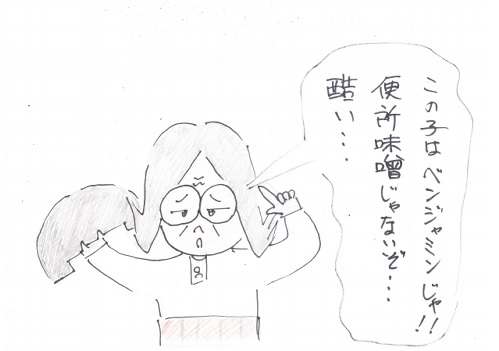 この子はベンジャミンじゃ!!
便所味噌じゃないぞ・・・
酷い・・・